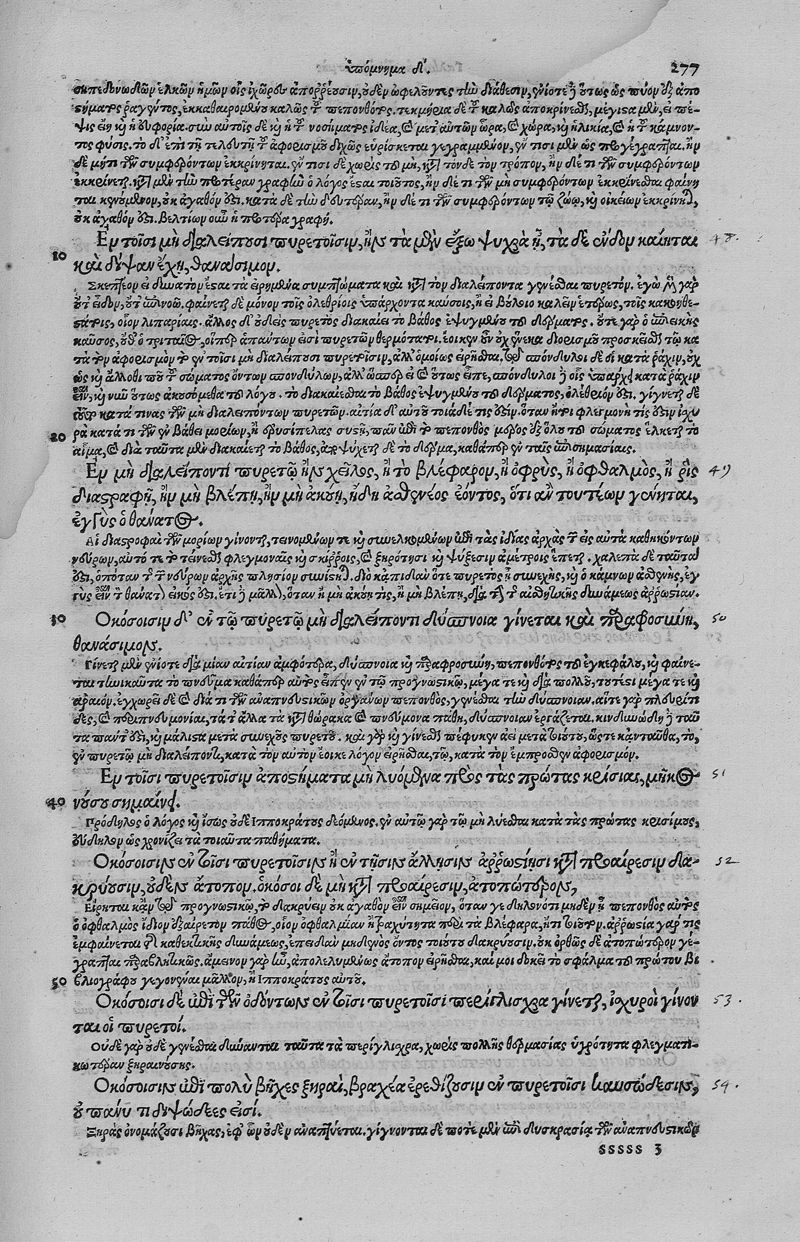 ὑπόμνημα δ'. 277
σηπεδονωδῶν ἑλκῶν ἡμῶν οἷς ἰχῶρες ἀποῤῥέουσιν, οὐδὲν ὠφελοῦντες τὴν διάθεσιν, γίνοιτο οὕτως ὡς πύον ἐξ ἀπο
στήματος ῥαγέντος, ἐκκαθαιρομένου καλῶς τοῦ πεπονθότος. τεκμήρια δὲ τοῦ καλῶς ἀποκρίνεσθαι, μέγιστα μὲν, εἰ πέ-
ψις εἴη καὶ ἡ εὐφορία. σὺν αὐτοῖς δὲ καὶ ἡ τοῦ νοσήματος ἰδέα, καὶ μετ' αὐτῶν ὥρα, καὶ χώρα, καὶ ἡλικία, καὶ ἡ τοῦ κάμνον-
τος φύσις. τὸ δ' ἐπὶ τῇ τελευτῇ τοῦ ἀφορισμοῦ διχῶς εὑρίσκεται γεγραμμένον, ἔν τισι μὲν ὡς προγέγραπται. ἢν
δὲ μή τι τῶν συμφερόντων ἐκκρίνηται. ἔν τισι δὲ χωρὶς τοῦ μὴ, κατὰ τόνδε τὸν τρόπον, ἢν δέ τι τῶν συμφερόντων
ἐκκρίνηται. κατὰ μὲν τὴν προτέραν γραφὴν ὁ λόγος ἔσται τοιοῦτος, ἢν δέ τι τῶν μὴ συμφερόντων ἐκκρίνεσθαι φαίνη
ται κενούμενον, οὐκ ἀγαθόν ἐστι. κατὰ δὲ τὴν δευτέραν, ἢν δέ τι τῶν συμφερόντων τῷ ζώῳ, καὶ οἰκείων ἐκκρίνηται,
οὐκ ἀγαθόν ἐστι. βελτίων οὖν ἡ προτέρα γραφή.
Ἐν τοῖσι μὴ διαλείπουσι πυρετοῖσιν, ἢν τὰ μὲν ἔξω ψυχρὰ ᾖ, τὰ δὲ ἔνδον καίηται 48.
καὶ δίψαν ἔχῃ, θανάσιμον.
Σκεπτέον εἰ δυνατόν ἐστι τὰ εἰρημένα συμπτώματα καὶ κατὰ τὸν διαλείποντα γενέσθαι πυρετόν. ἐγὼ μὲν γὰρ
οὔτ' εἶδον, οὔτ' ἐπινοῶ. φαίνεται δὲ μόνον τοῖς ὀλεθρίοις ὑπάρχοντα καύσοις, ἢ εἰ βούλοιο καλεῖν ἑτέρως, τοῖς κακοηθε-
στάτοις, οἷον λιπυρίαις. ἄλλος δ' οὐδεὶς πυρετὸς διακαίει τὸ βάθος ἐψυγμένου τοῦ δέρματος. οὔτε γὰρ ὁ ἐπιεικὴς
καῦσος, οὔθ' ὁ τριταῖος, οἵπερ ἁπάντων εἰσὶ πυρετῶν θερμότατοι. ἔοικεν οὖν οὐχ ἕνεκα διορισμοῦ προσκεῖσθαι τῷ κα
τὰ τὸν ἀφορισμὸν τὸ ἐν τοῖσι μὴ διαλείπουσι πυρετοῖσιν, ἀλλ' ὁμοίως εἰρῆσθαι. τῷ σπόνδυλοι δὲ οἱ κατὰ ῥάχιν, οὐχ
ὡς καὶ ἄλλοθί που τοῦ σώματος ὄντων σπονδύλων, ἀλλ' ὥσπερ εἰ οὕτως εἶπε, σπόνδυλοι οἷς ὑπάρχει κατὰ ῥάχιν
εἶναι, καὶ νῦν οὕτως ἀκουσόμεθα τοῦ λόγου. τὸ διακαίεσθαι τὸ βάθος ἐψυγμένου τοῦ δέρματος, ὀλέθριόν ἐστι. γίνεται δὲ
τοῦτο κατά τινας τῶν μὴ διαλειπόντων πυρετῶν. αἰτία δ' αὐτοῦ τοιάδε τίς ἐστιν, ὅταν ἤτοι φλεγμονή τις ᾖ ἰσχυ
ρὰ κατά τι τῶν ἐν βάθει μορίων, ἢ ἐρυσίπελας συστῇ, πᾶν ἐπὶ τὸ πεπονθὸς μέρος ἐξ ὅλου τοῦ σώματος ἕλκεται τὸ
αἷμα, καὶ διὰ ταῦτα μὲν διακαίεται τὸ βάθος, ἀποψύχεται δὲ τὸ δέρμα, καθάπερ ἐν ταῖς ἐπισημασίαις.
Ἐν μὴ διαλείποντι πυρετῷ ἢν χεῖλος, ἢ τὸ βλέφαρον, ἢ ὀφρὺς, ἢ ὀφθαλμὸς, ἢ ῥὶς 49
διαστραφῇ, ἢν μὴ βλέπῃ, ἢν μὴ ἀκούῃ, ἤδη ἀσθενέος ἐόντος, ὅ,τι ἂν τουτέων γένηται,
ἐγγὺς ὁ θάνατος.
Αἱ διαστροφαὶ τῶν μορίων γίνονται, τεινομένων τε καὶ συνελκομένων ἐπὶ τὰς ἰδίας ἀρχὰς τῶν εἰς αὐτὰ καθηκόντων
νεύρων, αὐτό τε τὸ τείνεσθαι φλεγμοναῖς καὶ σκίρροις, καὶ ξηρότησι καὶ ψύξεσιν ἀμέτροις ἕπεται. χαλεπὰ δὲ ταῦτα
ἐστι, ὁπόταν τῆς τῶν νεύρων ἀρχῆς πλησίον συνίστηται. εἰ δὲ κἀπειδὰν ὅ τε πυρετὸς ᾖ συνεχὴς, καὶ ὁ κάμνων ἀσθενὴς, ἐγ
γὺς εἶναι τοῦ θανάτου εἰκός ἐστι, ἔτι μᾶλλον, ὅταν ἢ μὴ ἀκούῃ τις, ἢ μὴ βλέπῃ, διὰ τὴν τῆς αἰσθητικῆς δυνάμεως ἀῤῥωστίαν.
Ὁκόσοισιν δ' ἐν τῷ πυρετῷ μὴ διαλείποντι δύσπνοια γίνεται καὶ παραφροσύνη, 50
θανάσιμον.
Γίνεται μὲν ἐνίοτε διὰ μίαν αἰτίαν ἀμφότερα, δύσπνοια καὶ παραφροσύνη, πεπονθότος τοῦ ἐγκεφάλου, καὶ φαίνε-
ται τηνικαῦτα τὸ πνεῦμα καθάπερ αὐτὸς εἶπεν ἐν τῷ προγνωστικῷ, μέγα τε καὶ διὰ πολλοῦ, τουτέστι μέγα τε καὶ
ἀραιόν. ἐγχωρεῖ δὲ καὶ διά τι τῶν ἀναπνευστικῶν ὀργάνων πεπονθὸς, γενέσθαι τὴν δύσπνοιαν. αἵτε γὰρ πλευρίτι
δες, καὶ περιπνευμονίαι, τά τ' ἄλλα τὰ κατὰ θώρακα καὶ πνεύμονα πάθη, δύσπνοιαν ἐργάζεται. κινδυνώδη ταῦ
τα παντί ἐστι, καὶ μάλιστα μετὰ συνεχοῦς πυρετοῦ. καὶ γὰρ καὶ γίνεσθαι πέφυκεν ἀεὶ μετὰ τούτου, ὥστε κἀνταῦθα, τὸ,
ἐν πυρετῷ μὴ διαλείποντι, κατὰ τὸν αὐτὸν ἔοικε λόγον εἰρῆσθαι, τῷ, κατὰ τὸν ἔμπροσθεν ἀφορισμόν.
Ἐν τοῖσι πυρετοῖσιν ἀποστήματα μὴ λυόμενα πρὸς τὰς πρώτας κρίσιας, μῆκος 51
νόσου σημαίνει.
Πρόδηλος ὁ λόγος καὶ ἴσως οὐδὲ Ἱπποκράτους δεόμενος. ἐν αὐτῷ γὰρ τῷ μὴ λύεσθαι κατὰ τὰς πρώτας κρισίμους,
εὔδηλον ὡς χρονίζει τὰ τοιαῦτα παθήματα.
Ὁκόσοισιν ἐν τοῖσι πυρετοῖσιν ἢ ἐν τῇσιν ἄλλῃσιν ἀῤῥωστίῃσι κατὰ προαίρεσιν δα- 52
κρύουσιν, οὐδὲν ἄτοπον. ὁκόσοι δὲ μὴ κατὰ προαίρεσιν, ἀτοπώτερον,
Εἴρηται κἀν τῷ προγνωστικῷ, τὸ δακρύειν οὐκ ἀγαθὸν εἶναι σημεῖον, ὅταν γε δηλονότι μηδὲν ᾖ πεπονθὸς αὐτὸς
ὁ ὀφθαλμὸς ἴδιον ἐξαίρετον πάθος, οἷον ὀφθαλμίαν ἢ τραχύτητα περὶ τὰ βλέφαρα, ἤ τι τοιοῦτον. ἀῤῥωστία γάρ τις
ἐμφαίνεται τῆς καθεκτικῆς δυνάμεως, ἐπειδὰν μηδενὸς ὄντος τοιούτου δακρύουσιν. οὐκ ὀρθῶς δὲ ἀτοπώτερον γέ-
γραπται παραβλητικῶς. ἄμεινον γὰρ ἦν, ἀπολελυμένως ἄτοπον εἰρῆσθαι, καί μοι δοκεῖ τὸ σφάλμα τοῦ πρώτου βι
βλιογράφου γεγονέναι μᾶλλον, ἢ Ἱπποκράτους αὐτοῦ.
Ὁκόσοισι δὲ ἐπὶ τῶν ὀδόντων ἐν τοῖσι πυρετοῖσι περίγλισχρα γίνεται, ἰσχυροὶ γίνον 53.
ται οἱ πυρετοί.
Οὐδὲ γὰρ οὐδὲ γενέσθαι δύνανται ταῦτα τὰ περίγλισχρα, χωρὶς πολλῆς θερμασίας ὑγρότητα φλεγματι-
κωτέραν ξηραινούσης.
Ὁκόσοισιν ἐπὶ πολὺ βῆχες ξηραὶ, βραχέα ἐρεθίζουσιν ἐν πυρετοῖσι καυσώδεσιν, 54.
οὐ πάνυ τι διψώδεές εἰσι.
Ξηρὰς ὀνομάζουσι βῆχας, ἐφ' ὧν οὐδὲν ἀναπτύεται. γίγνονται δέ ποτε μὲν ἐπὶ δυσκρασίᾳ τῶν ἀναπνευστικῶν
SSSSS 3